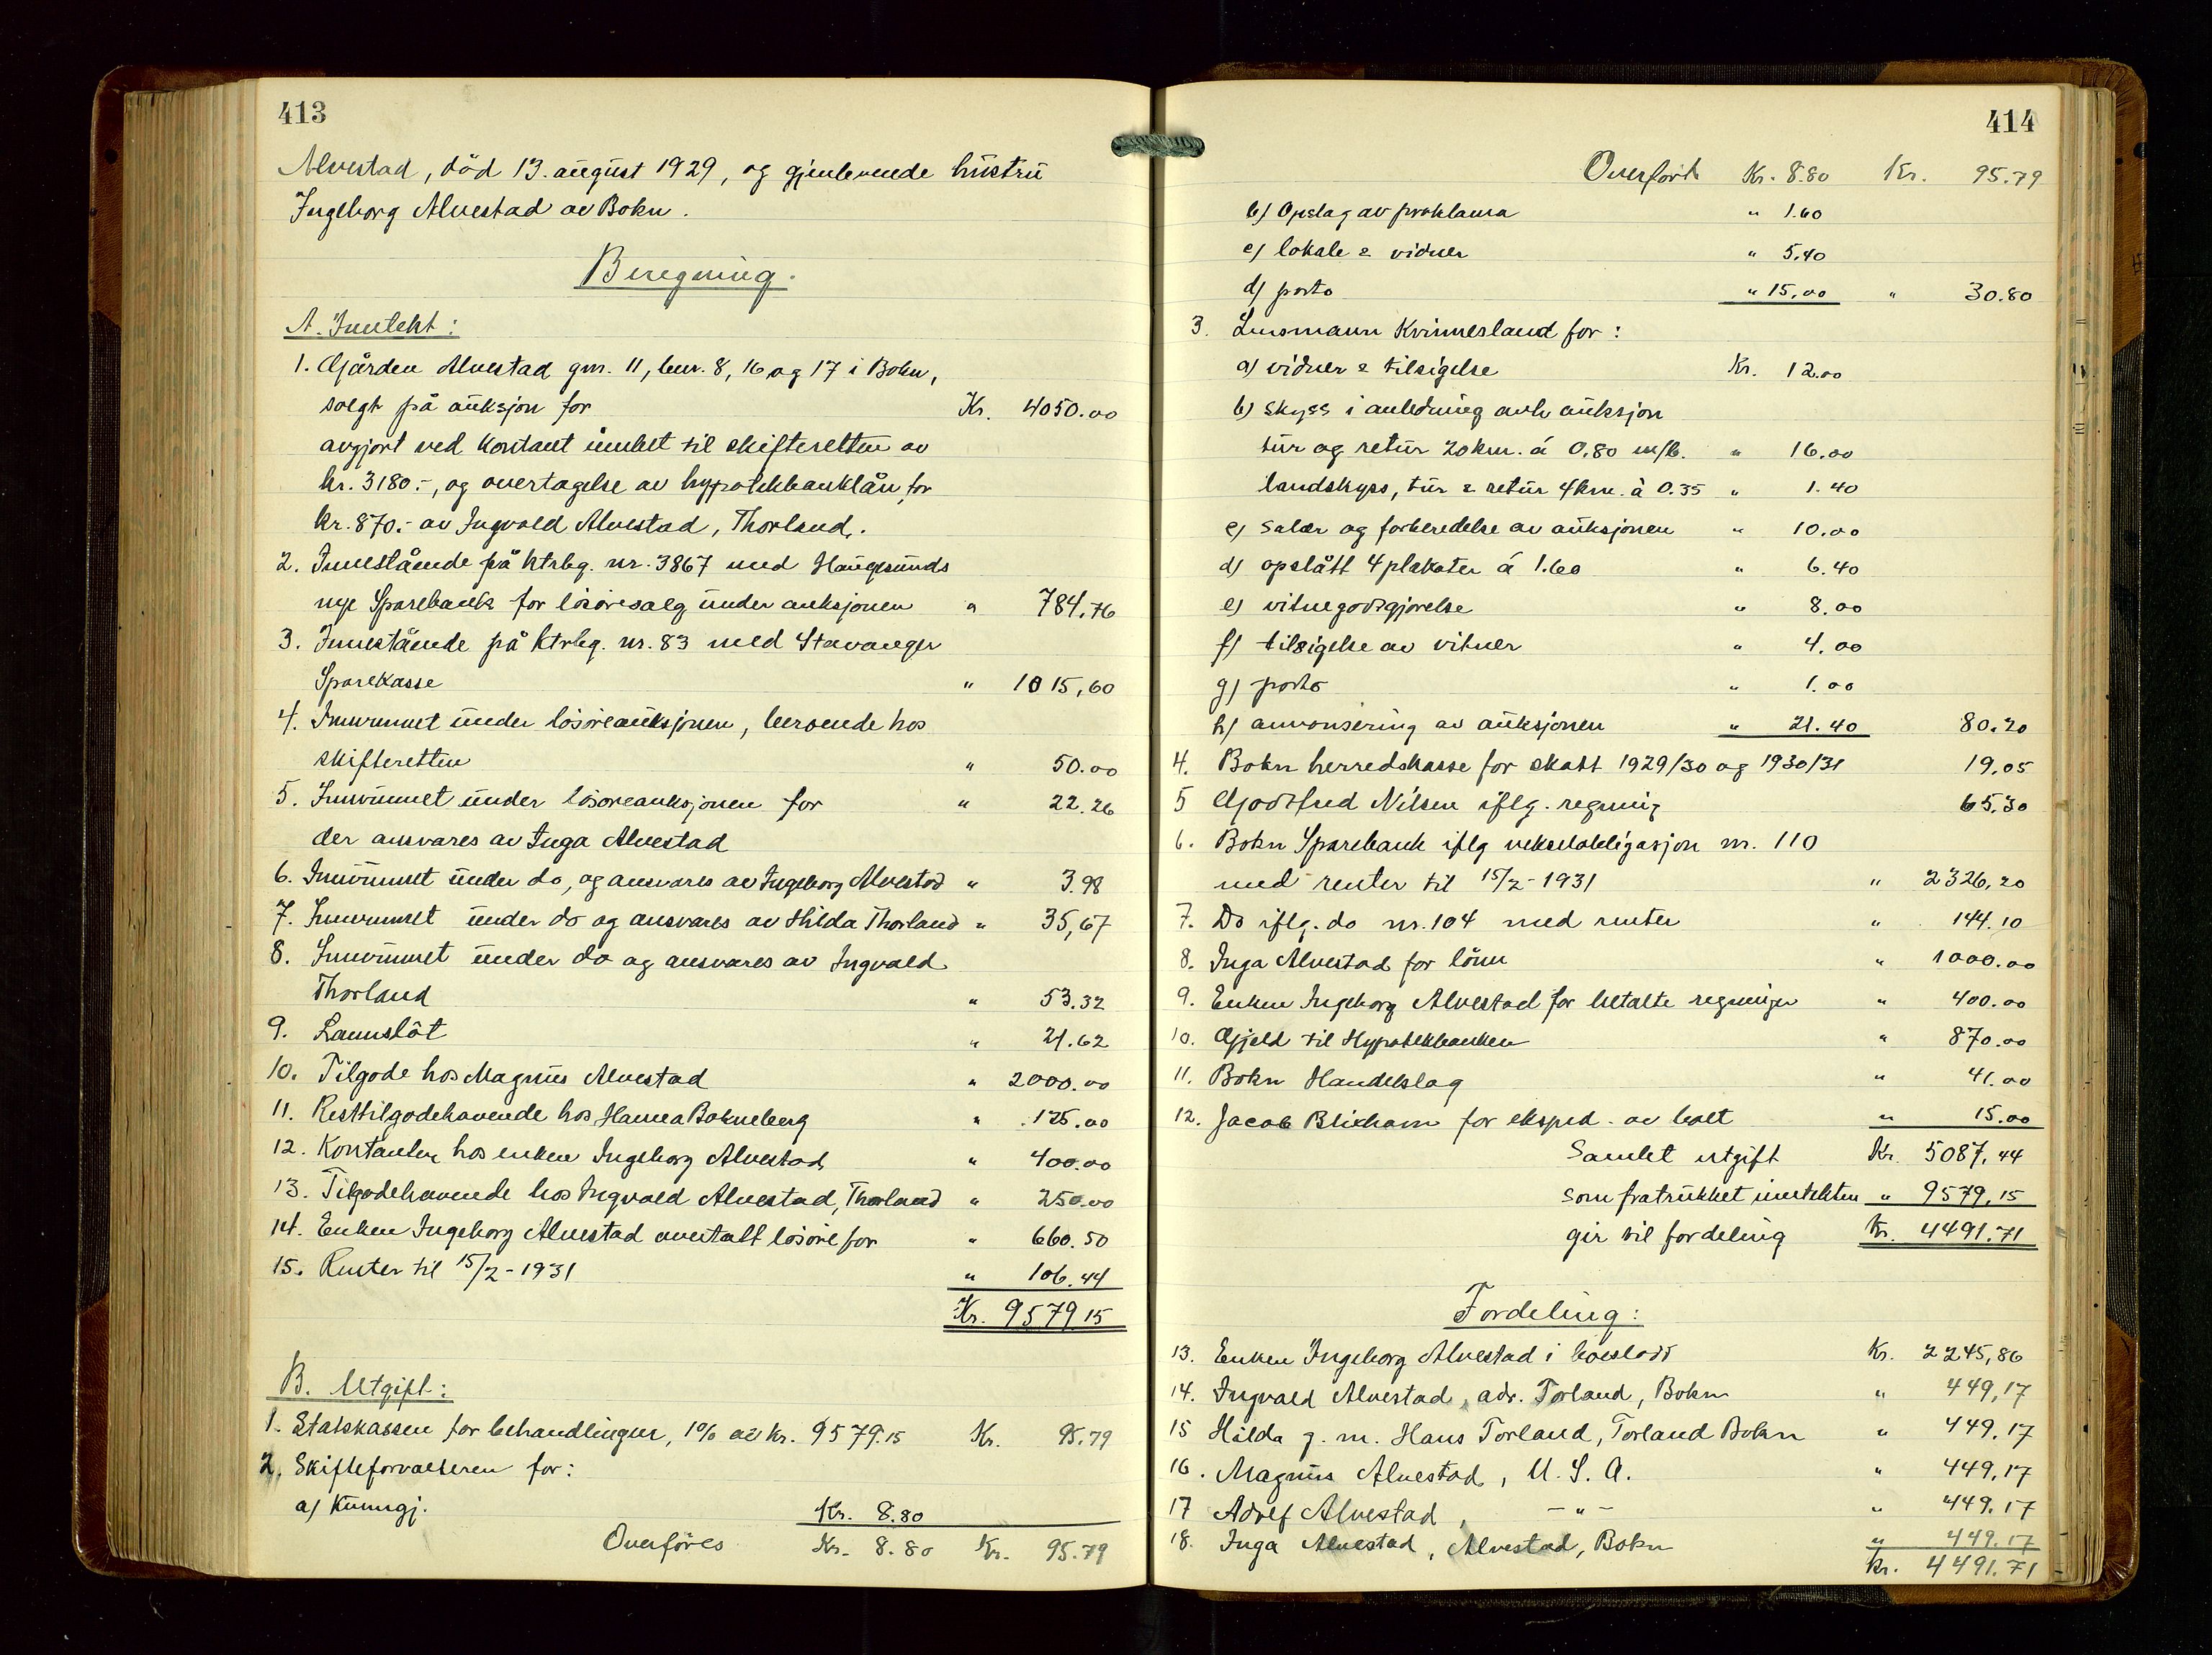 413
Alvestad, död 13. august 1929, og gjenlevende hustru
Ingeborg Alvestad av Bokn.
Beregning.
A. Inntekt:
1. Gården Alvestad gnr. 11, bnr. 8, 16 og 17 i Bokn,
solgt på auksjon for Kr. 4050.00
avgjort ved kontant innbet til skifteretten av
kr. 3180.-, og overtagelse av hypotekbanklån for
kr. 870.- av Ingvald Alvestad, Thorland.
2. Innestående på ktrbg. nr. 3867 med Haugesunds
nye Sparebank for lösöresalg under auksjonen " 784.76
3. Innestående på ktrbg. nr. 83 med Stavanger
Sparekasse " 1015,60
4. Innvunnet under lösöreauksjonen, beroende hos
skifteretten " 50.00
5. Innvunnet under lösöreauksjonen for " 22.26
der ansvares av Inga Alvestad
6. Innvunnet under do, og ansvares av Ingeborg Alvestad " 3.98
7. Innvunnet under do og ansvares av Hilda Thorland " 35,67
8. Innvunnet under do og ansvares av Ingvald
Thorland " 53.32
9. " 21.62
10. Tilgode hos Magnus Alvestad " 2000.00
11. Resttilgodehavende hos Hanna Bokneberg " 125.00
12. Kontanter hos enken Ingeborg Alvestad " 400.00
13. Tilgodehavende hos Ingvald Alvestad, Thorland " 250.00
14. Enken Ingeborg Alvestad overtatt lösöre for " 660.50
15. Renter til 15/2-1931 " 106.44
Kr. 9579 15
B. Utgift:
1. Statskassen for behandlingen, 1% av kr. 9579.15 Kr. 95.79
2. Skifteforvalteren for:
a) Kunngj. Kr. 8.80
Overföres Kr. 8.80 Kr. 95.79
414
Overfört Kr. 8.80 Kr. 95.79
b) Opslag av proklama " 1.60
c) lokale & vidner " 5.40
d) porto " 15.00 " 30.80
3. Lensmann Kvinnesland for:
a) vidner & tilsigelse Kr. 12.00
b) skyss i anledning avh auksjon
tur og retur 20 km. á 0.80 m/b. " 16.00
landskyss, tur & retur 4 km. à 0.35 " 1.40
c) salær og forberedelse av auksjonen " 10.00
d) opslått 4 plakater á 1.60 " 6.40
e) vitnegodtgjörelse " 8.00
f) tilsigelse av vitner " 4.00
g) porto " 1.00
h) annonsering av auksjonen " 21.40 80.20
4. Bokn herredskasse for skatt 1929/30 og 1930/31 19.05
5 Godtfred Nilsen iflg. regning 65.30
6. Bokn Sparebank iflg vekselobligasjon nr. 110
med renter til 15/2-1931 " 2326,20
7. Do iflg. do nr. 104 med renter " 144.10
8. Inga Alvestad for lönn " 1000.00
9. Enken Ingeborg Alvestad for betalte regninger " 400.00
10. Gjeld til Hypotekbanken " 870.00
11. Bokn Handelslag " 41.00
12. Jacob Blikhavn for eksped. av " 15.00
Samlet utgift Kr. 5087,44
som fratrukket inntekten " 9579,15
gir til fordeling Kr. 4491.71
Fordeling:
13. Enken Ingeborg Alvestad i boeslodd Kr. 2245,86
14. Ingvald Alvestad, adr. Torland, Bokn " 449,17
15 Hilda g. m. Hans Torland, Torland Bokn " 449.17
16. Magnus Alvestad, U.S.A. " 449,17
17 Adolf Alvestad, - " - " 449.17
18. Inga Alvestad, Alvestad, Bokn " 449.17
Kr. 4491.71